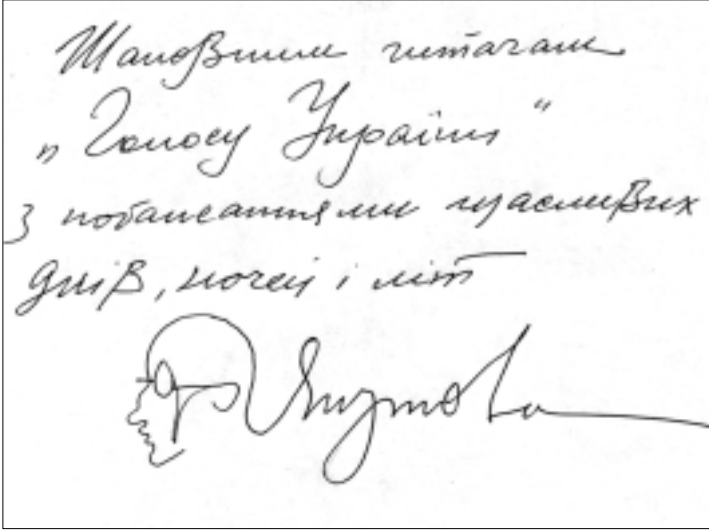 Шановним читачам
„Голосу України“
з побажаннями щасливих
днів, ночей і літ